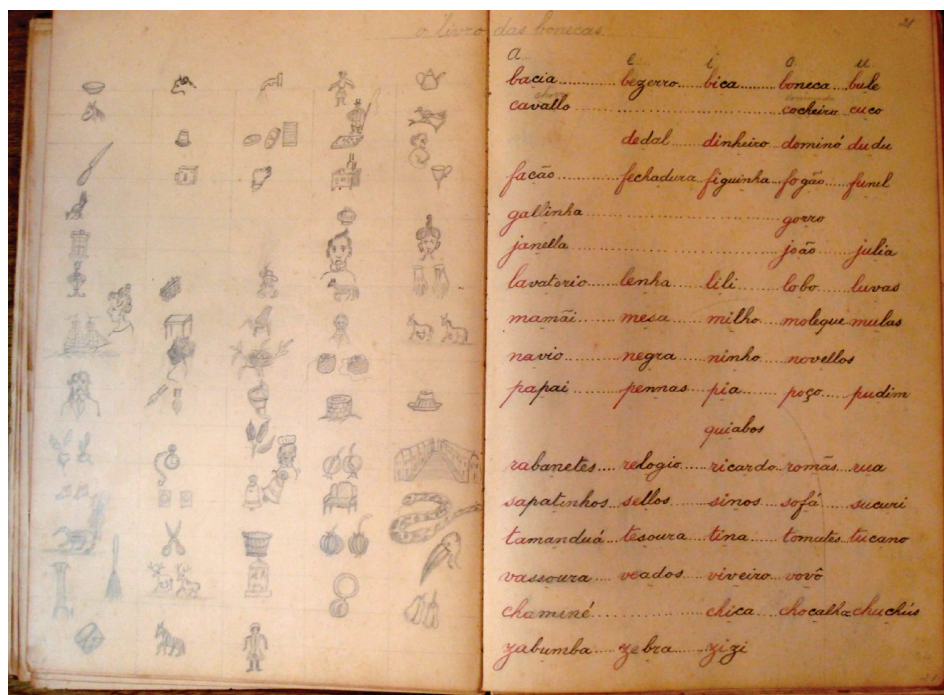 o livro das bonecas
21
a e i o u
bacia..........bezerro....bica........boneca...bule
cavallo..........................cocheiro...cuco
dedal......dinheiro...dominó dudu
facão..........fechadura figuinha..fogão....funil
gallinha..........................gorro
janella..........................joão......julia
lavatorio....lenha.......lili.......lobo.....luvas
mamãi........mesa......milho...moleque mulas
navio..........negra......ninho...novellos
papai..........pennas...pia.......poço.....pudim
quiabos
rabanetes....relogio....ricardo..romãs...rua
sapatinhos..sellos......sinos....sofá......sucuri
tamanduá..tesoura...tina......tomates..tucano
vassoura....veados....viveiro...vovô
chaminé..................chica....chocalho chuchús
zabumba....zebra.....zizi